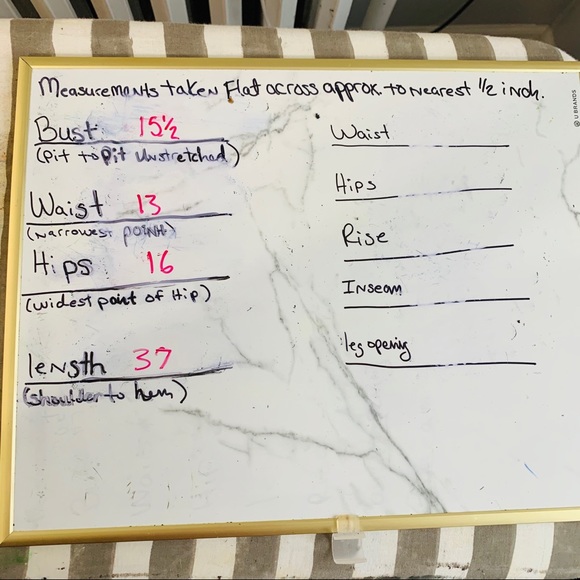 Measurements taken Flat across approx. to nearest 1/2 inch.
Bust 15½
(pit to pit unstretched)
Waist 13
(narrowest point)
Hips 16
(widest point of Hip)
length 37
(shoulder to hem)
Waist
Hips
Rise
Inseam
leg opening
U BRANDS